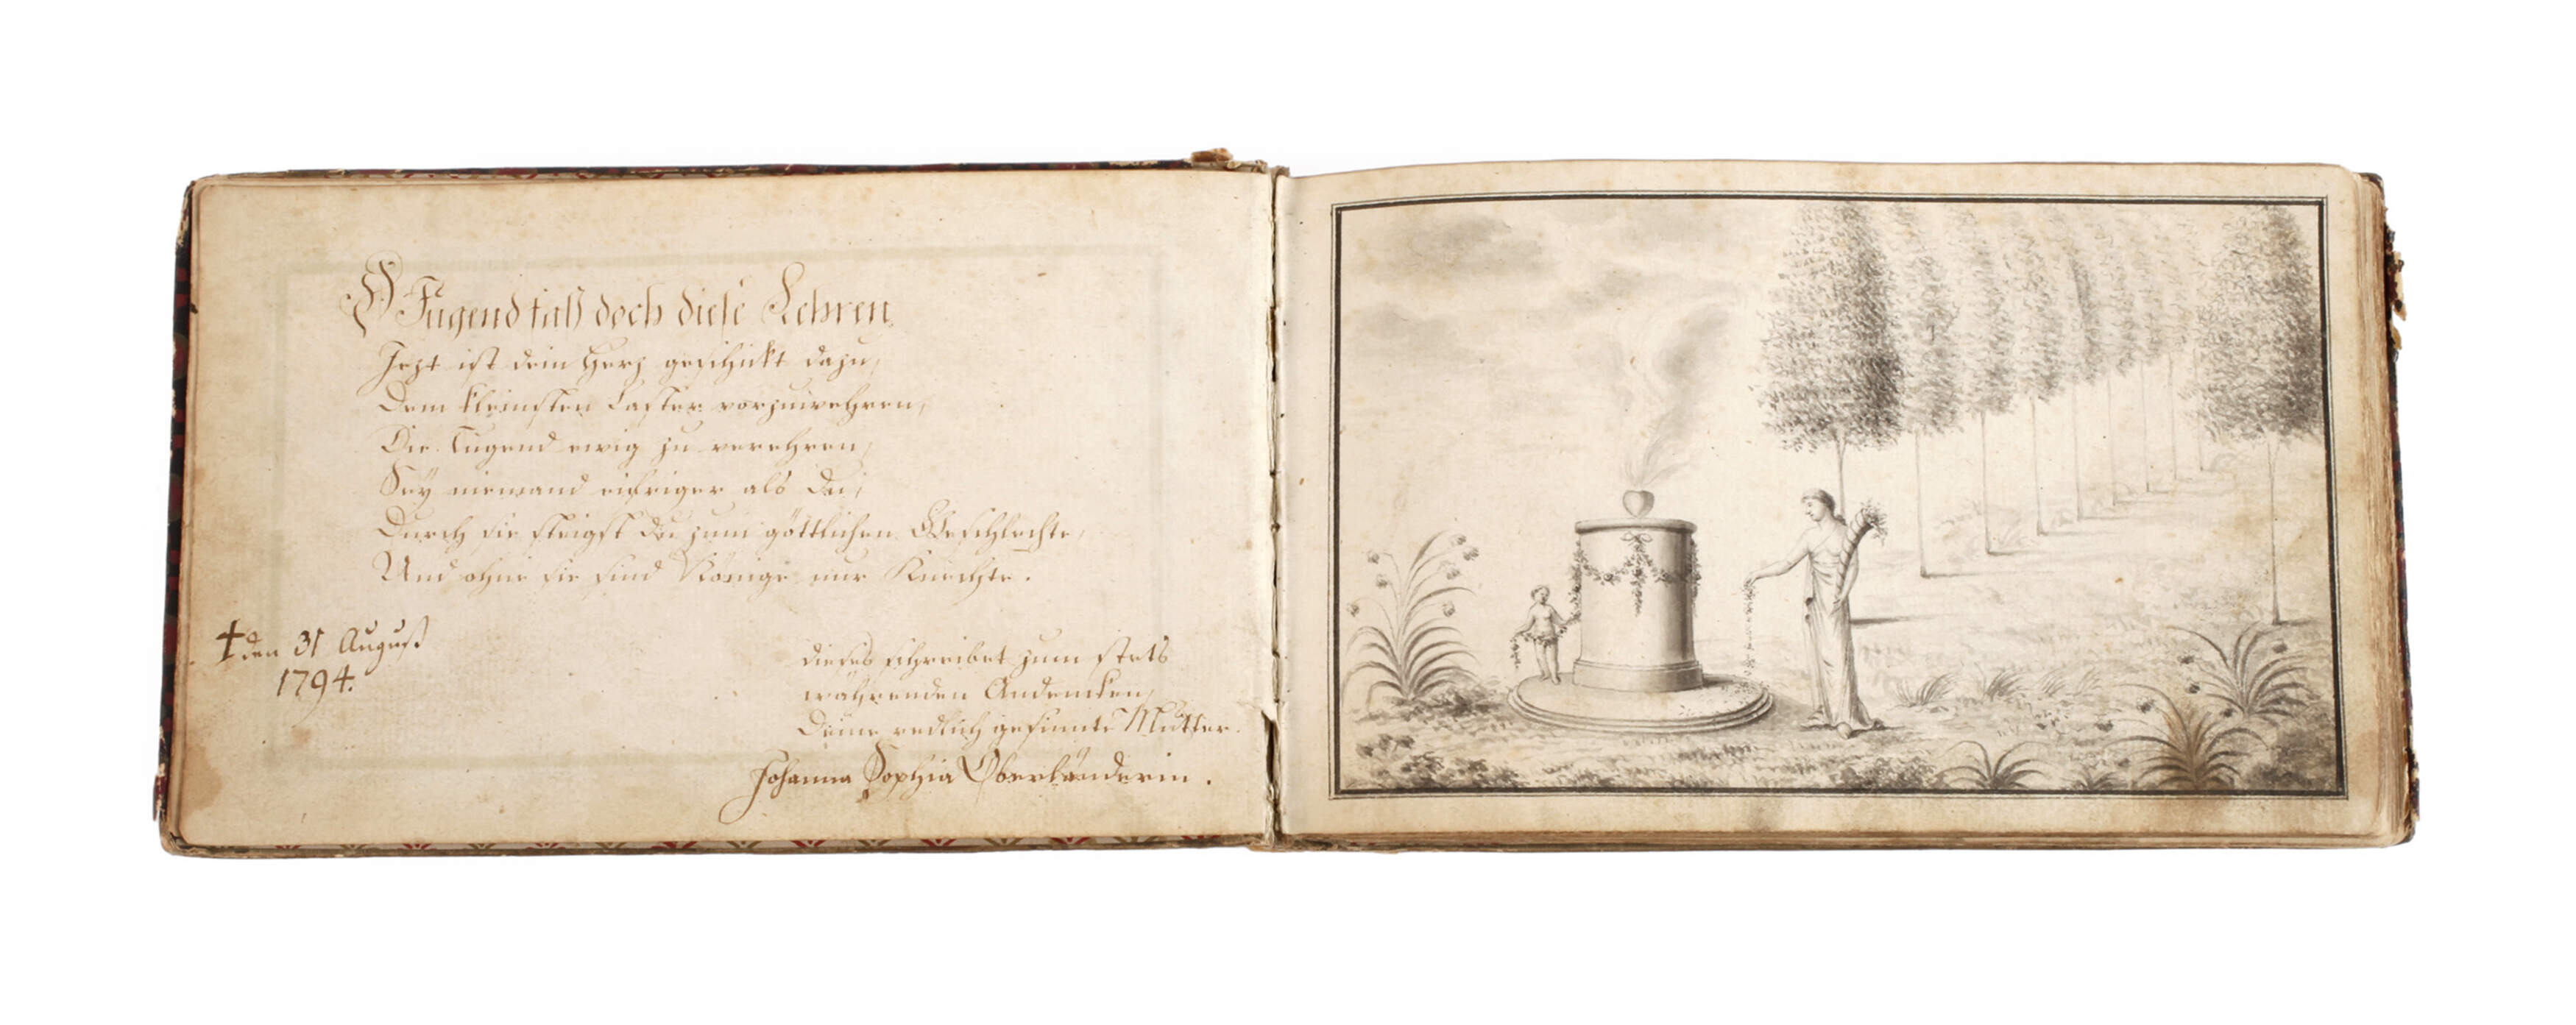 O Jugend faß doch diese Lehren,
Jezt ist dein Herz geschickt dazu,
Dem kleinsten Laster vorzuwehren,
Die Tugend ewig zu verehren,
Sey niemand eifriger als du;
Durch sie steigst du zum göttlichen Geschlechte,
Und ohne sie sind Könige nur Knechte.
† den 31 August
1794.
dieses schreibet zum stets
währenden Andencken,
Deine redlich gesinnte Mutter.
Johanna Sophia Oberländerin.